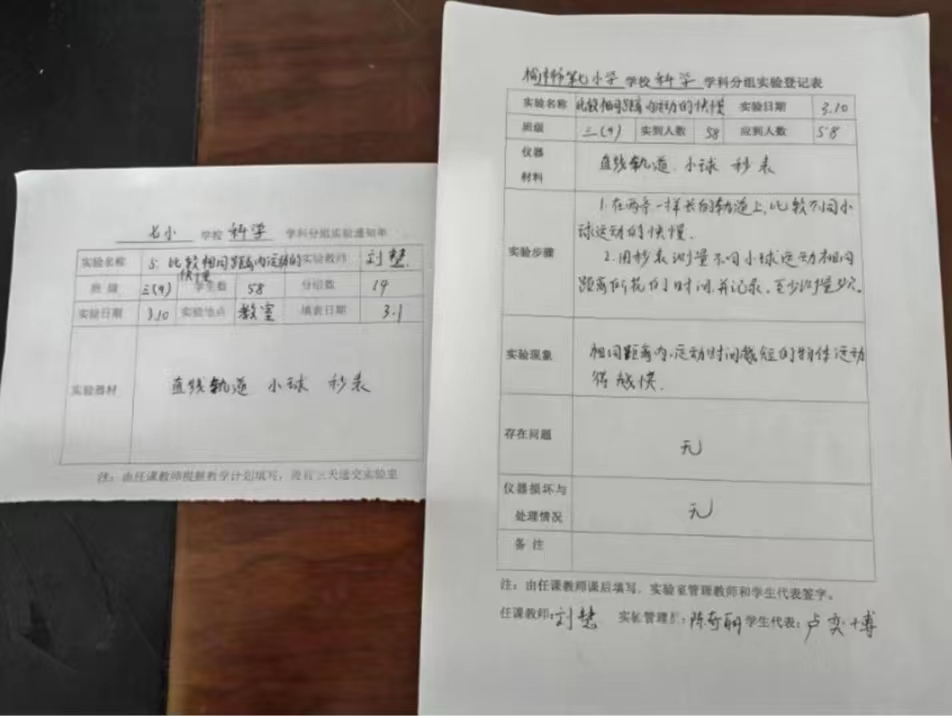 七小 学校 科学 学科分组实验通知单
实验名称 5.比较相同距离内运动的快慢 实验教师 刘慧
班级 三(9) 学生数 58 分组数 19
实验日期 3.10 实验地点 教室 填表日期 3.1
实验器材 直线轨道 小球 秒表
注:由任课教师根据教学计划填写,提前三天送交实验室
第七小学 学校 科学 学科分组实验登记表
实验名称 比较相同距离内运动的快慢 实验日期 3.10
班级 三(9) 实到人数 58 应到人数 58
仪器
材料 直线轨道、小球 秒表
1.在两条一样长的轨道上,比较不同小
球运动的快慢.
实验步骤
2.用秒表测量不同小球运动相同
距离所花的时间,并记录,至少测量
实验现象 相同距离内,运动时间越短的物体运动
得越快.
存在问题 无
仪器损坏与
处理情况 无
备注
注:由任课教师课后填写,实验室管理教师和学生代表签字。
任课教师:刘慧 实验管理员: 学生代表: